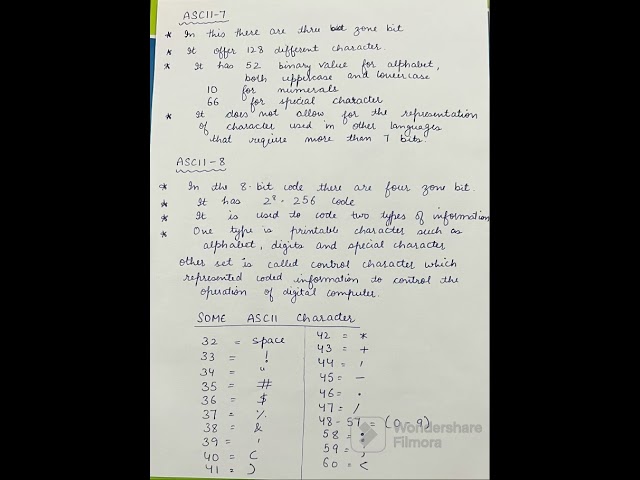 ASCII-7
* In this there are three bit zone bit
* It offer 128 different character.
* It has 52 binary value for alphabet,
both uppercase and lowercase
10 for numerals
66 for special character
* It does not allow for the representation
of character used in other languages
that require more than 7 bits.
ASCII-8
* In the 8-bit code there are four zone bit.
* It has 2⁸ = 256 code
* It is used to code two types of information
* One type is printable character such as
alphabet, digits and special character
other set is called control character which
represented coded information to control the
operation of digital computer.
SOME ASCII Character
32 = space
33 = !
34 = "
35 = #
36 = $
37 = %
38 = &
39 = '
40 = (
41 = )
42 = *
43 = +
44 = ,
45 = -
46 = .
47 = /
48-57 = (0-9)
58 = :
59 = ;
60 = <
Wondershare
Filmora